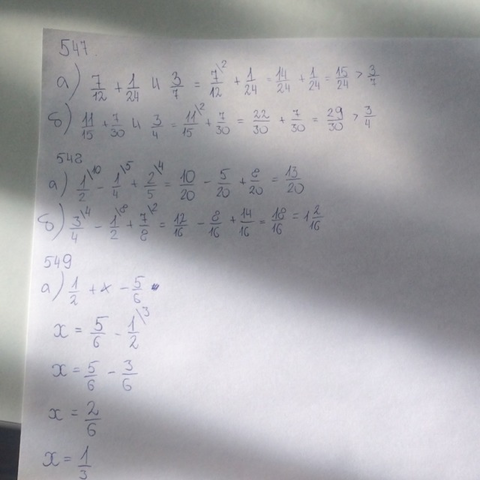 547.
а) 7/12 + 1/24 и 3/7 = 7\2/12 + 1/24 = 14/24 + 1/24 = 15/24 > 3/7
б) 11/15 + 7/30 и 3/4 = 11\2/15 + 7/30 = 22/30 + 7/30 = 29/30 > 3/4
548
а) 1\10/2 - 1\5/4 + 2\4/5 = 10/20 - 5/20 + 8/20 = 13/20
б) 3\4/4 - 1\8/2 + 7\2/8 = 12/16 - 8/16 + 14/16 = 18/16 = 1 2/16
549
а) 1/2 + x - 5/6
x = 5/6 - 1\3/2
x = 5/6 - 3/6
x = 2/6
x = 1/3